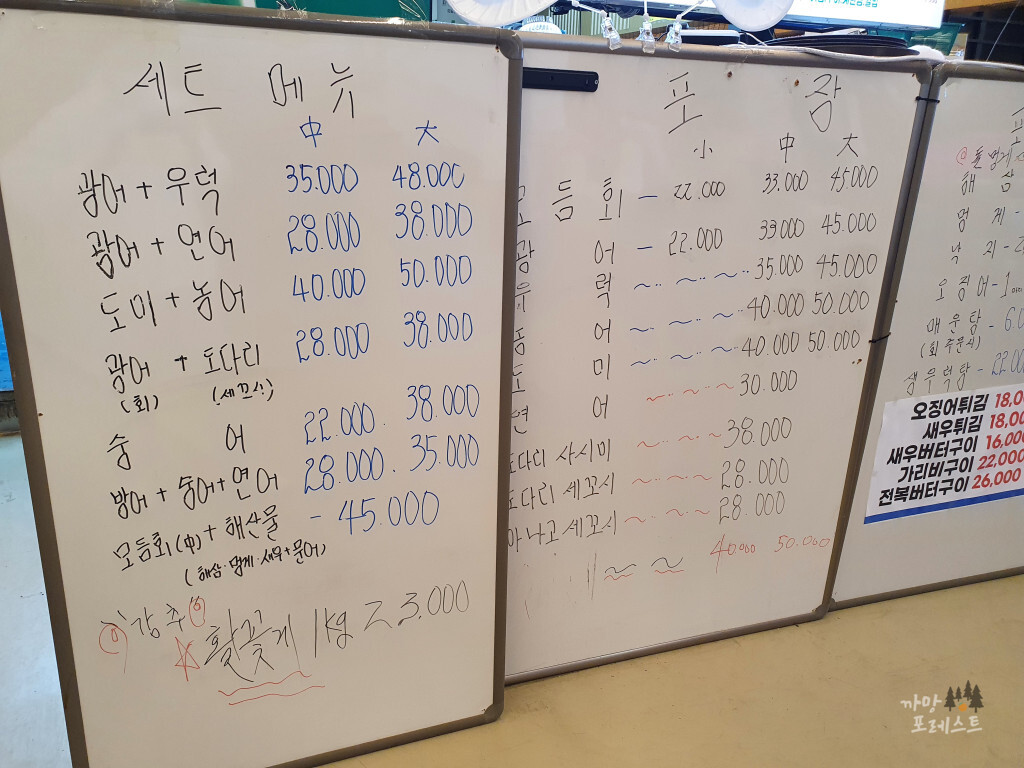 세트 메뉴
中 大
광어 + 우럭 35.000 48.000
광어 + 연어 28.000 38.000
도미 + 농어 40.000 50.000
광어 + 도다리 28.000 38.000
(회) (세꼬시)
숭어 22.000. 38.000
방어 + 숭어 + 연어 28.000. 35.000
모듬회(中) + 해산물 - 45.000
(해삼·멍게·새우+문어)
강추
활꽃게 1kg 23.000
포장
小 中 大
모듬회 - 22.000 33.000 45.000
광어 - 22.000 33.000 45.000
우럭 ~ ·· ~ ·· ~ 35.000 45.000
농어 ~ ·· ~ ·· ~ 40.000 50.000
도미 ~ ·· ~ ·· ~ 40.000 50.000
연어 ~ ·· ~ ·· ~ 30.000
도다리 사시미 ~ ·· ~ ·· ~ 38.000
도다리 세꼬시 ~ ·· ~ ·· ~ 28.000
아나고 세꼬시 ~ ·· ~ ·· ~ 28.000
~ ~ 40.000 50.000
해삼
멍게 -
낙지 -
오징어 -
매운탕 -
(회 주문시)
생우럭탕 -
오징어튀김
새우튀김
새우버터구이 16,000
가리비구이 22,000
전복버터구이 26,000
까망
포레스트